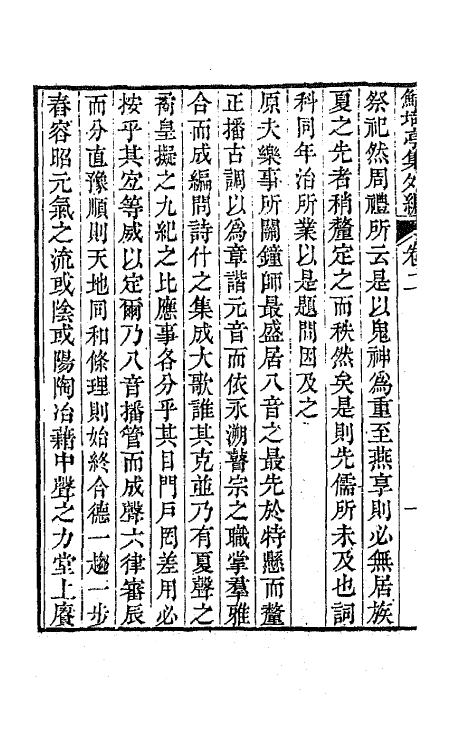 鮚埼亭集外編 卷二
祭祀然周禮所云是以鬼神為重至燕享則必無居族
夏之先者稍釐定之而秩然矣是則先儒所未及也詞
科同年治所業以是題問因及之
原夫樂事所關鐘師最盛居八音之最先於特懸而釐
正播古調以為章諧元音而依永溯瞽宗之職掌羣雅
合而成編問詩什之集成大歌誰其克並乃有夏聲之
裔皇擬之九紀之比應事各分乎其目門戶罔差用必
按乎其宐等威以定爾乃八音播管而成聲六律審辰
而分直豫順則天地同和條理則始終合德一趨一步
舂容昭元氣之流或陰或陽陶冶藉中聲之力堂上賡